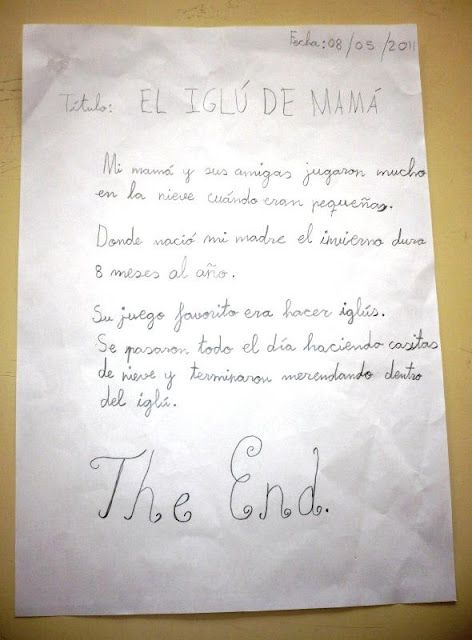 Fecha: 08/05/2011
Título: EL IGLÚ DE MAMÁ
Mi mamá y sus amigas jugaron mucho
en la nieve cuándo eran pequeñas.
Donde nació mi madre el invierno dura
8 meses al año.
Su juego favorito era hacer iglús.
Se pasaron todo el día haciendo casitas
de nieve y terminaron merendando dentro
del iglú.
The End.